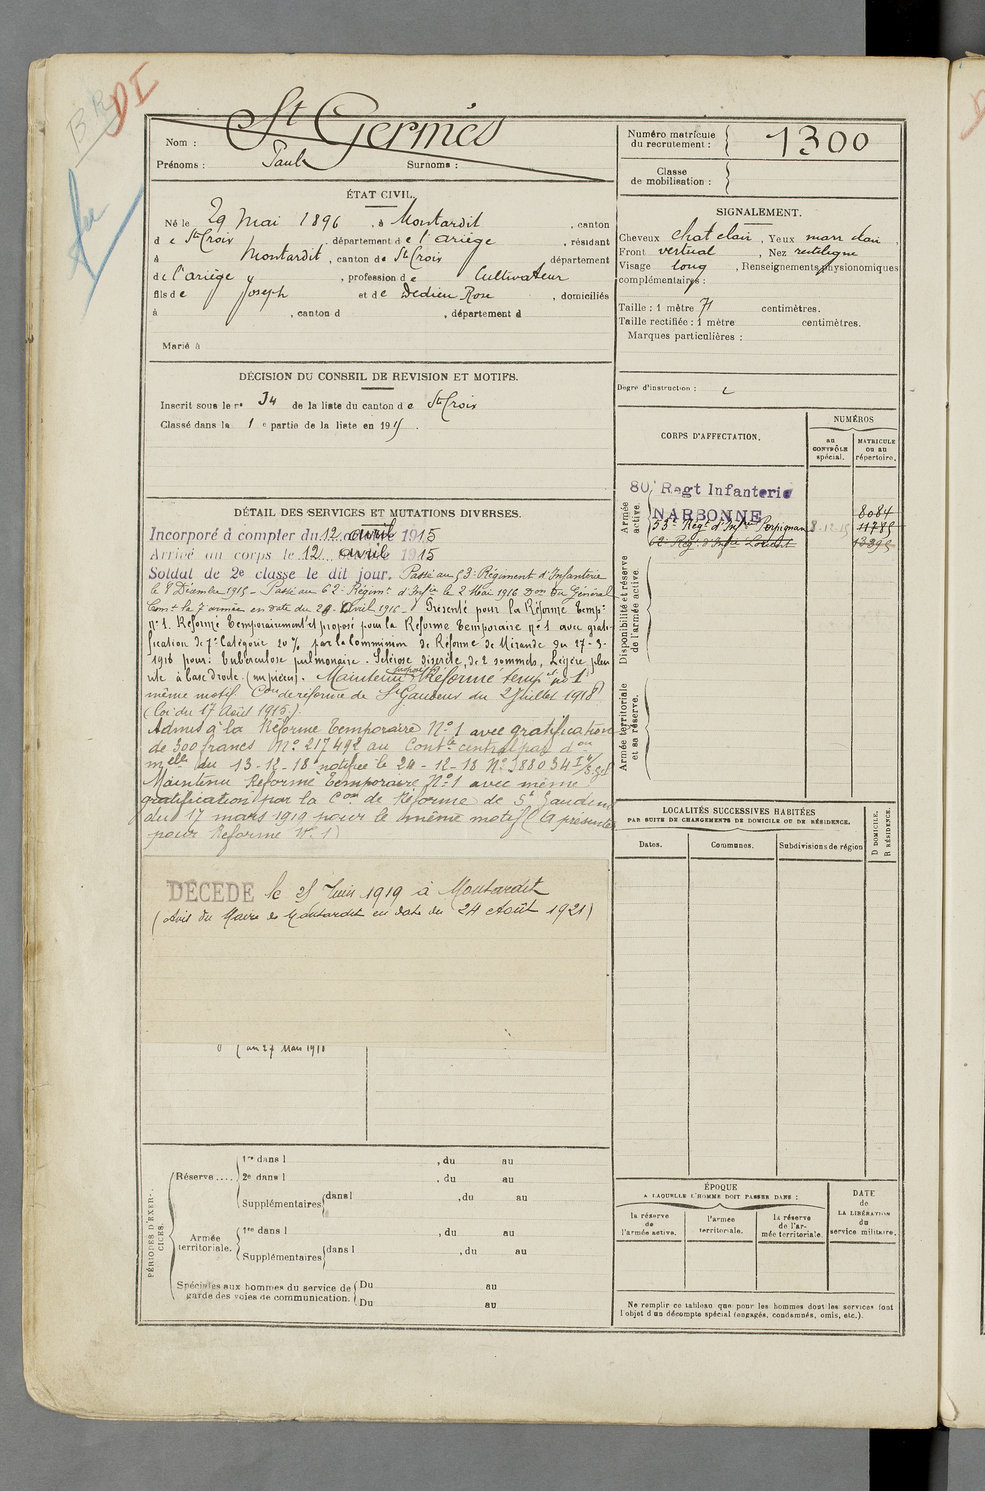 DI
Nom : St Germès
Prénoms : Paul Surnoms :
Numéro matricule du recrutement : 1300
Classe de mobilisation :
ÉTAT CIVIL.
Né le 29 Mai 1896, à Montardit, canton
de Ste Croix, département de l'Ariège, résidant
à Montardit, canton de Ste Croix département
de l'Ariège, profession de Cultivateur
fils de Joseph et de Dedieu Rose, domiciliés
à , canton d , département d
Marié à
SIGNALEMENT.
Cheveux chat clair, Yeux marr clair,
Front vertical, Nez rectiligne
Visage long, Renseignements physionomiques
complémentaires :
Taille : 1 mètre 71 centimètres.
Taille rectifiée : 1 mètre centimètres.
Marques particulières :
DÉCISION DU CONSEIL DE REVISION ET MOTIFS.
Inscrit sous le no 34 de la liste du canton de Ste Croix
Classé dans la 1e partie de la liste en 1915.
Degré d'instruction : 2
CORPS D'AFFECTATION.
NUMÉROS
au CONTRÔLE spécial.
MATRICULE OU AU répertoire.
Armée active.
80, Regt Infanterie
NARBONNE 8084
53e Régt d'Infrie Perpignan 8.12.15 11785
62e Rég. d'Infie Lorient 13395
Disponibilité et réserve de l'armée active.
Armée territoriale et sa réserve.
DÉTAIL DES SERVICES ET MUTATIONS DIVERSES.
Incorporé à compter du 12 avril 1915
Arrivé au corps le 12 avril 1915
Soldat de 2e classe le dit jour. Passé au 53e Régiment d'Infanterie
le 8 Décembre 1915 - Passé au 62e Régimt d'Infie le 2 Mai 1916 Don du Général
Comt la 7e armée en date du 29 Avril 1916 - Présenté pour la Réforme Tempre
no 1. Réformé temporairement et proposé pour la Réforme Temporaire no 1 avec grati-
fication de 7e Catégorie 20% par la Commission de Réforme de Mirande du 27-3-
1918 pour : tuberculose pulmonaire. Sclérose discrète, de 2 sommets, Légère pleu
rite à base droite. Maintenu proposé Réformé tempre no 1
même motif. Con de réforme de St Gaudens du 2 Juillet 1918
(loi du 17 Août 1915).
Admis à la Réforme Temporaire No 1 avec gratification
de 300 francs No 217492 au Contle central par don
melle du 13-12-18 notifiée le 24-12-18 No 188034
Maintenu Réformé Temporaire No 1 avec même
gratification par la Con de Réforme de St Gaudens
du 17 mars 1919 pour le même motif (à présenter
pour Réforme No 1)
DÉCÉDÉ le 25 Juin 1919 à Montardit
(Avis du Maire de Montardit en date du 24 Août 1921)
au 27 Mars 1918
LOCALITÉS SUCCESSIVES HABITÉES
PAR SUITE DE CHANGEMENTS DE DOMICILE OU DE RÉSIDENCE.
Dates. Communes. Subdivisions de région
D DOMICILE.
R RÉSIDENCE.
PÉRIODES D'EXERCICES.
Réserve....
1re dans l , du au
2e dans l , du au
Supplémentaires dans l , du au
Armée territoriale.
1re dans l , du au
Supplémentaires dans l , du au
Spéciales aux hommes du service de garde des voies de communication.
Du au
Du au
ÉPOQUE
A LAQUELLE L'HOMME DOIT PASSER DANS :
la réserve de l'armée active.
l'armée territoriale.
la réserve de l'armée territoriale.
DATE de LA LIBÉRATION du service militaire.
Ne remplir ce tableau que pour les hommes dont les services font
l'objet d'un décompte spécial (engagés, condamnés, omis, etc.).